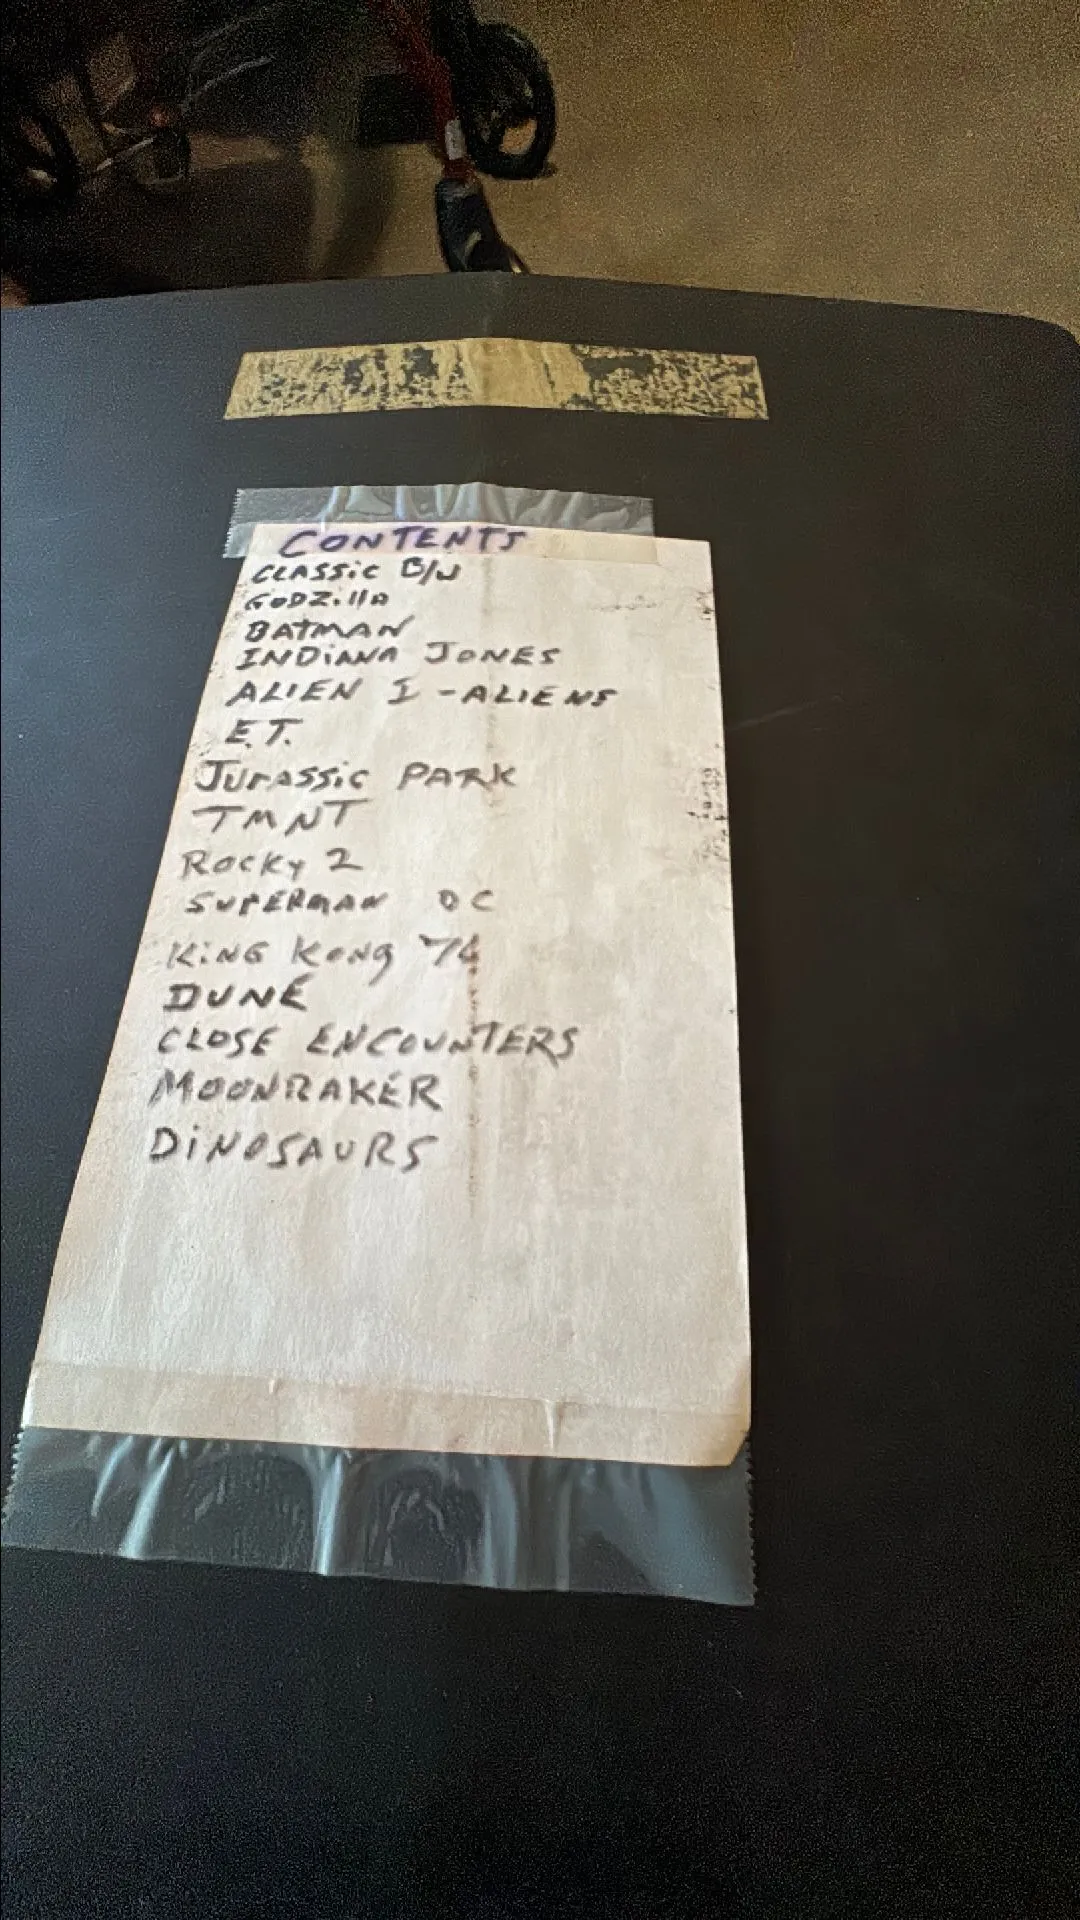 CONTENTS
CLASSiC B/W
GODZilla
BATMAN
INDiANA JONES
ALIEN I - ALIENS
E.T.
JURASSiC PARK
TMNT
ROCKY 2
SUPERMAN DC
KiNG KONG '76
DUNE
CLOSE ENCOUNTERS
MOONRAKER
DiNOSAURS